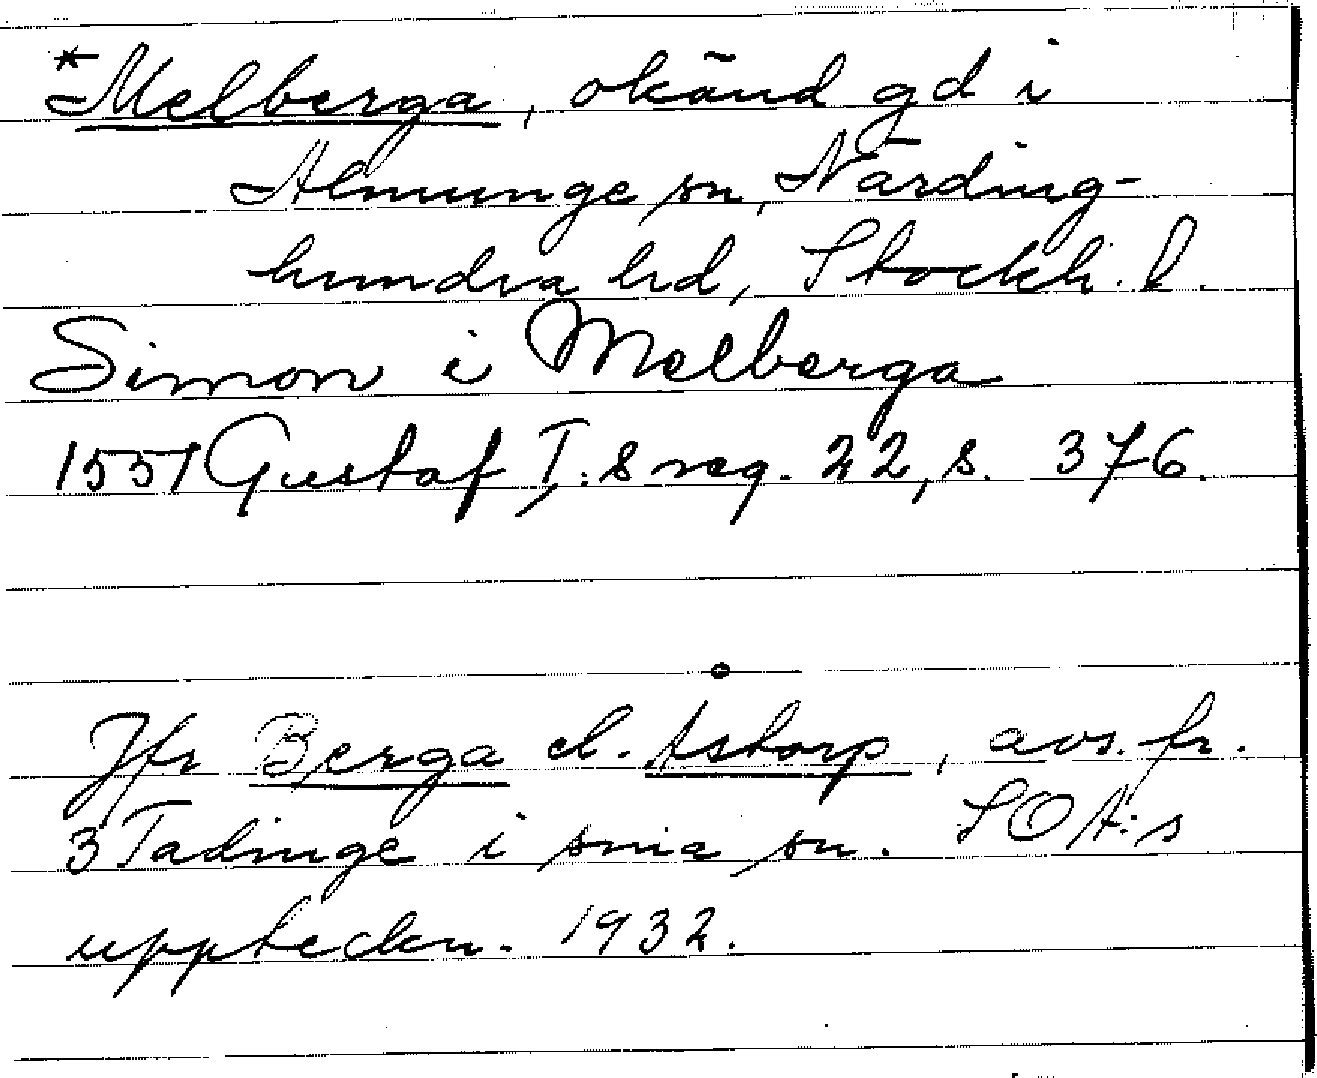 *Melberga, okänd gd i
Almunge sn, Närding-
hundra hd, Stockh. l.
Simon i Melberga
1551 Gustaf I:s reg. 22, s. 376.
Jfr Berga el. Åstorp, avs. fr.
3 Tadinge i sma sn. SOA:s
uppteckn. 1932.